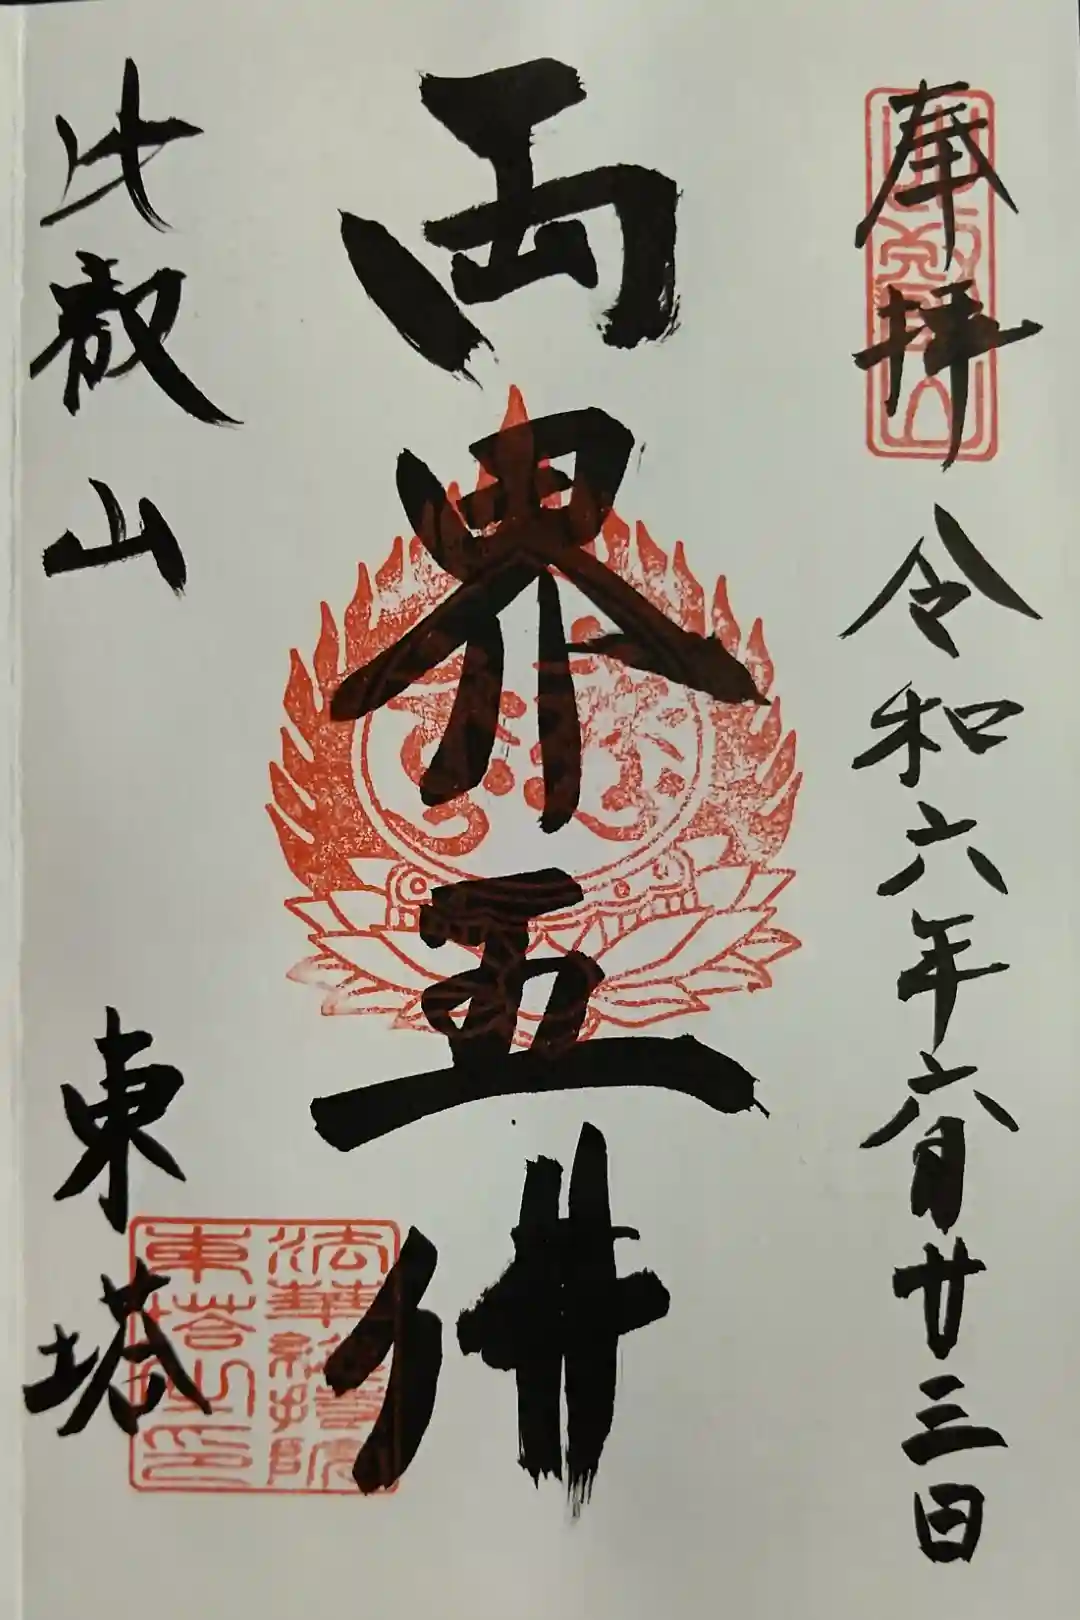 奉拝 令和六年六月廿三日
両界五仏
比叡山 東塔
法華総持院
東塔之印